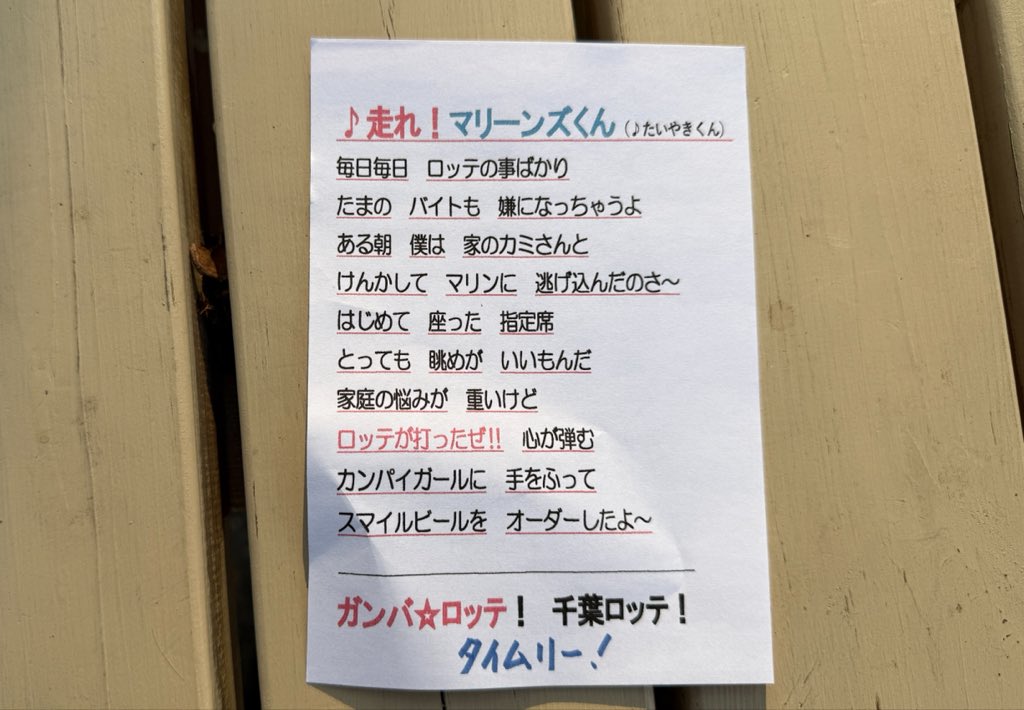 ♪走れ！マリーンズくん（♪たいやきくん）
毎日毎日　ロッテの事ばかり
たまの　バイトも　嫌になっちゃうよ
ある朝　僕は　家のカミさんと
けんかして　マリンに　逃げ込んだのさ～
はじめて　座った　指定席
とっても　眺めが　いいもんだ
家庭の悩みが　重いけど
ロッテが打ったぜ!!　心が弾む
カンパイガールに　手をふって
スマイルビールを　オーダーしたよ～
ガンバ☆ロッテ！　千葉ロッテ！
タイムリー！